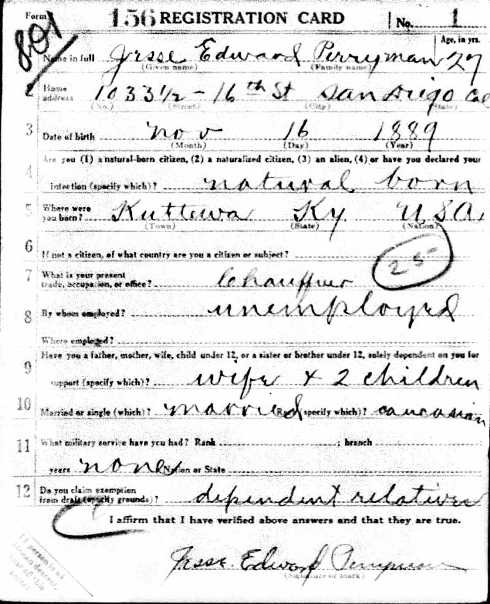 Form 156 REGISTRATION CARD No. 1
801
Age, in yrs.
Name in full Jesse Edward Perryman 27
(Given name) (Family name)
2 Home address 1033 1/2 - 16th St San Diego Cal
(No.) (Street) (City) (State)
3 Date of birth Nov 16 1889
(Month) (Day) (Year)
Are you (1) a natural-born citizen, (2) a naturalized citizen, (3) an alien, (4) or have you declared your
4 intention (specify which)? natural born
5 Where were you born? Kuttawa Ky USA,
(Town) (State) (Nation)
6 If not a citizen, of what country are you a citizen or subject?
25
7 What is your present trade, occupation, or office? Chauffeur
8 By whom employed? unemployed
Where employed?
Have you a father, mother, wife, child under 12, or a sister or brother under 12, solely dependent on you for
9 support (specify which)? wife + 2 children
10 Married or single (which)? married Race (specify which)? caucasian
11 What military service have you had? Rank ; branch
years none Nation or State
12 Do you claim exemption from draft (specify grounds)? dependent relatives
I affirm that I have verified above answers and that they are true.
Jesse Edward Perryman
(Signature or mark)
If person is of